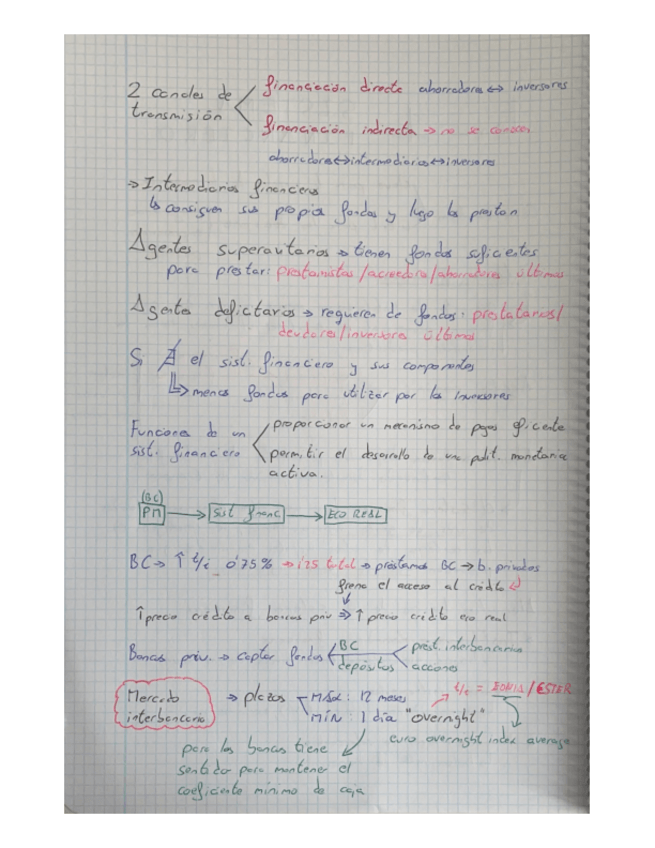 2 canales de transmisión
financiación directa ahorradores ↔ inversores
financiación indirecta → no se conocen
ahorradores ↔ intermediarios ↔ inversores
→ Intermediarios financieros
↳ consiguen sus propios fondos y luego los prestan
Agentes superavitarios → tienen fondos suficientes
para prestar: prestamistas/acreedores/ahorradores últimos
Agentes deficitarios → requieren de fondos: prestatarios/
deudores/inversores últimos
Si ∄ el sist. financiero y sus componentes
↳ menos fondos para utilizar por los inversores
Funciones de un sist. financiero
proporcionar un mecanismo de pagos eficiente
permitir el desarrollo de una polit. monetaria
activa.
(BC)
PM → Sist financ → ECO REAL
BC → ↑ t/i 0'75% → 1'25 total → préstamos BC → b. privados
frena el acceso al crédito
↑ precio crédito a bancos priv ⇒ ↑ precio crédito eco real
Bancos priv. → captar fondos
BC
depósitos
prést. interbancarios
acciones
Mercado interbancario → plazos
MÁx: 12 meses
MÍN: 1 día "overnight"
t/i = EONIA/ESTER
euro overnight index average
para los bancos tiene
sentido para mantener el
coeficiente mínimo de caja